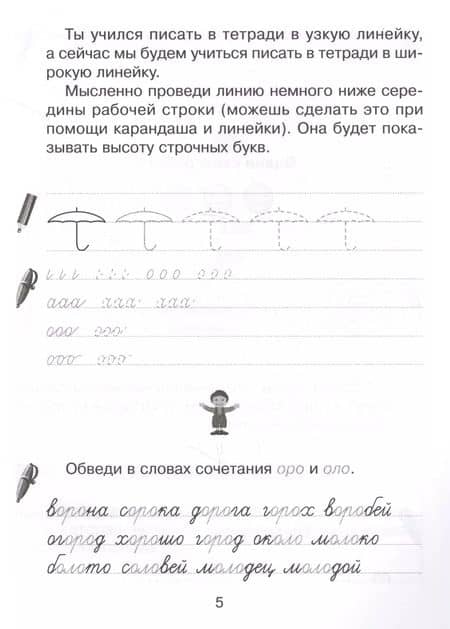 Ты учился писать в тетради в узкую линейку,
а сейчас мы будем учиться писать в тетради в ши-
рокую линейку.
Мысленно проведи линию немного ниже сере-
дины рабочей строки (можешь сделать это при
помощи карандаша и линейки). Она будет пока-
зывать высоту строчных букв.
ооо
ааа ааа ааа
ооо ооо
ооо ооо
Обведи в словах сочетания оро и оло.
ворона сорока дорога горох воробей
огород хорошо город около молоко
болото соловей молодец молодой
5